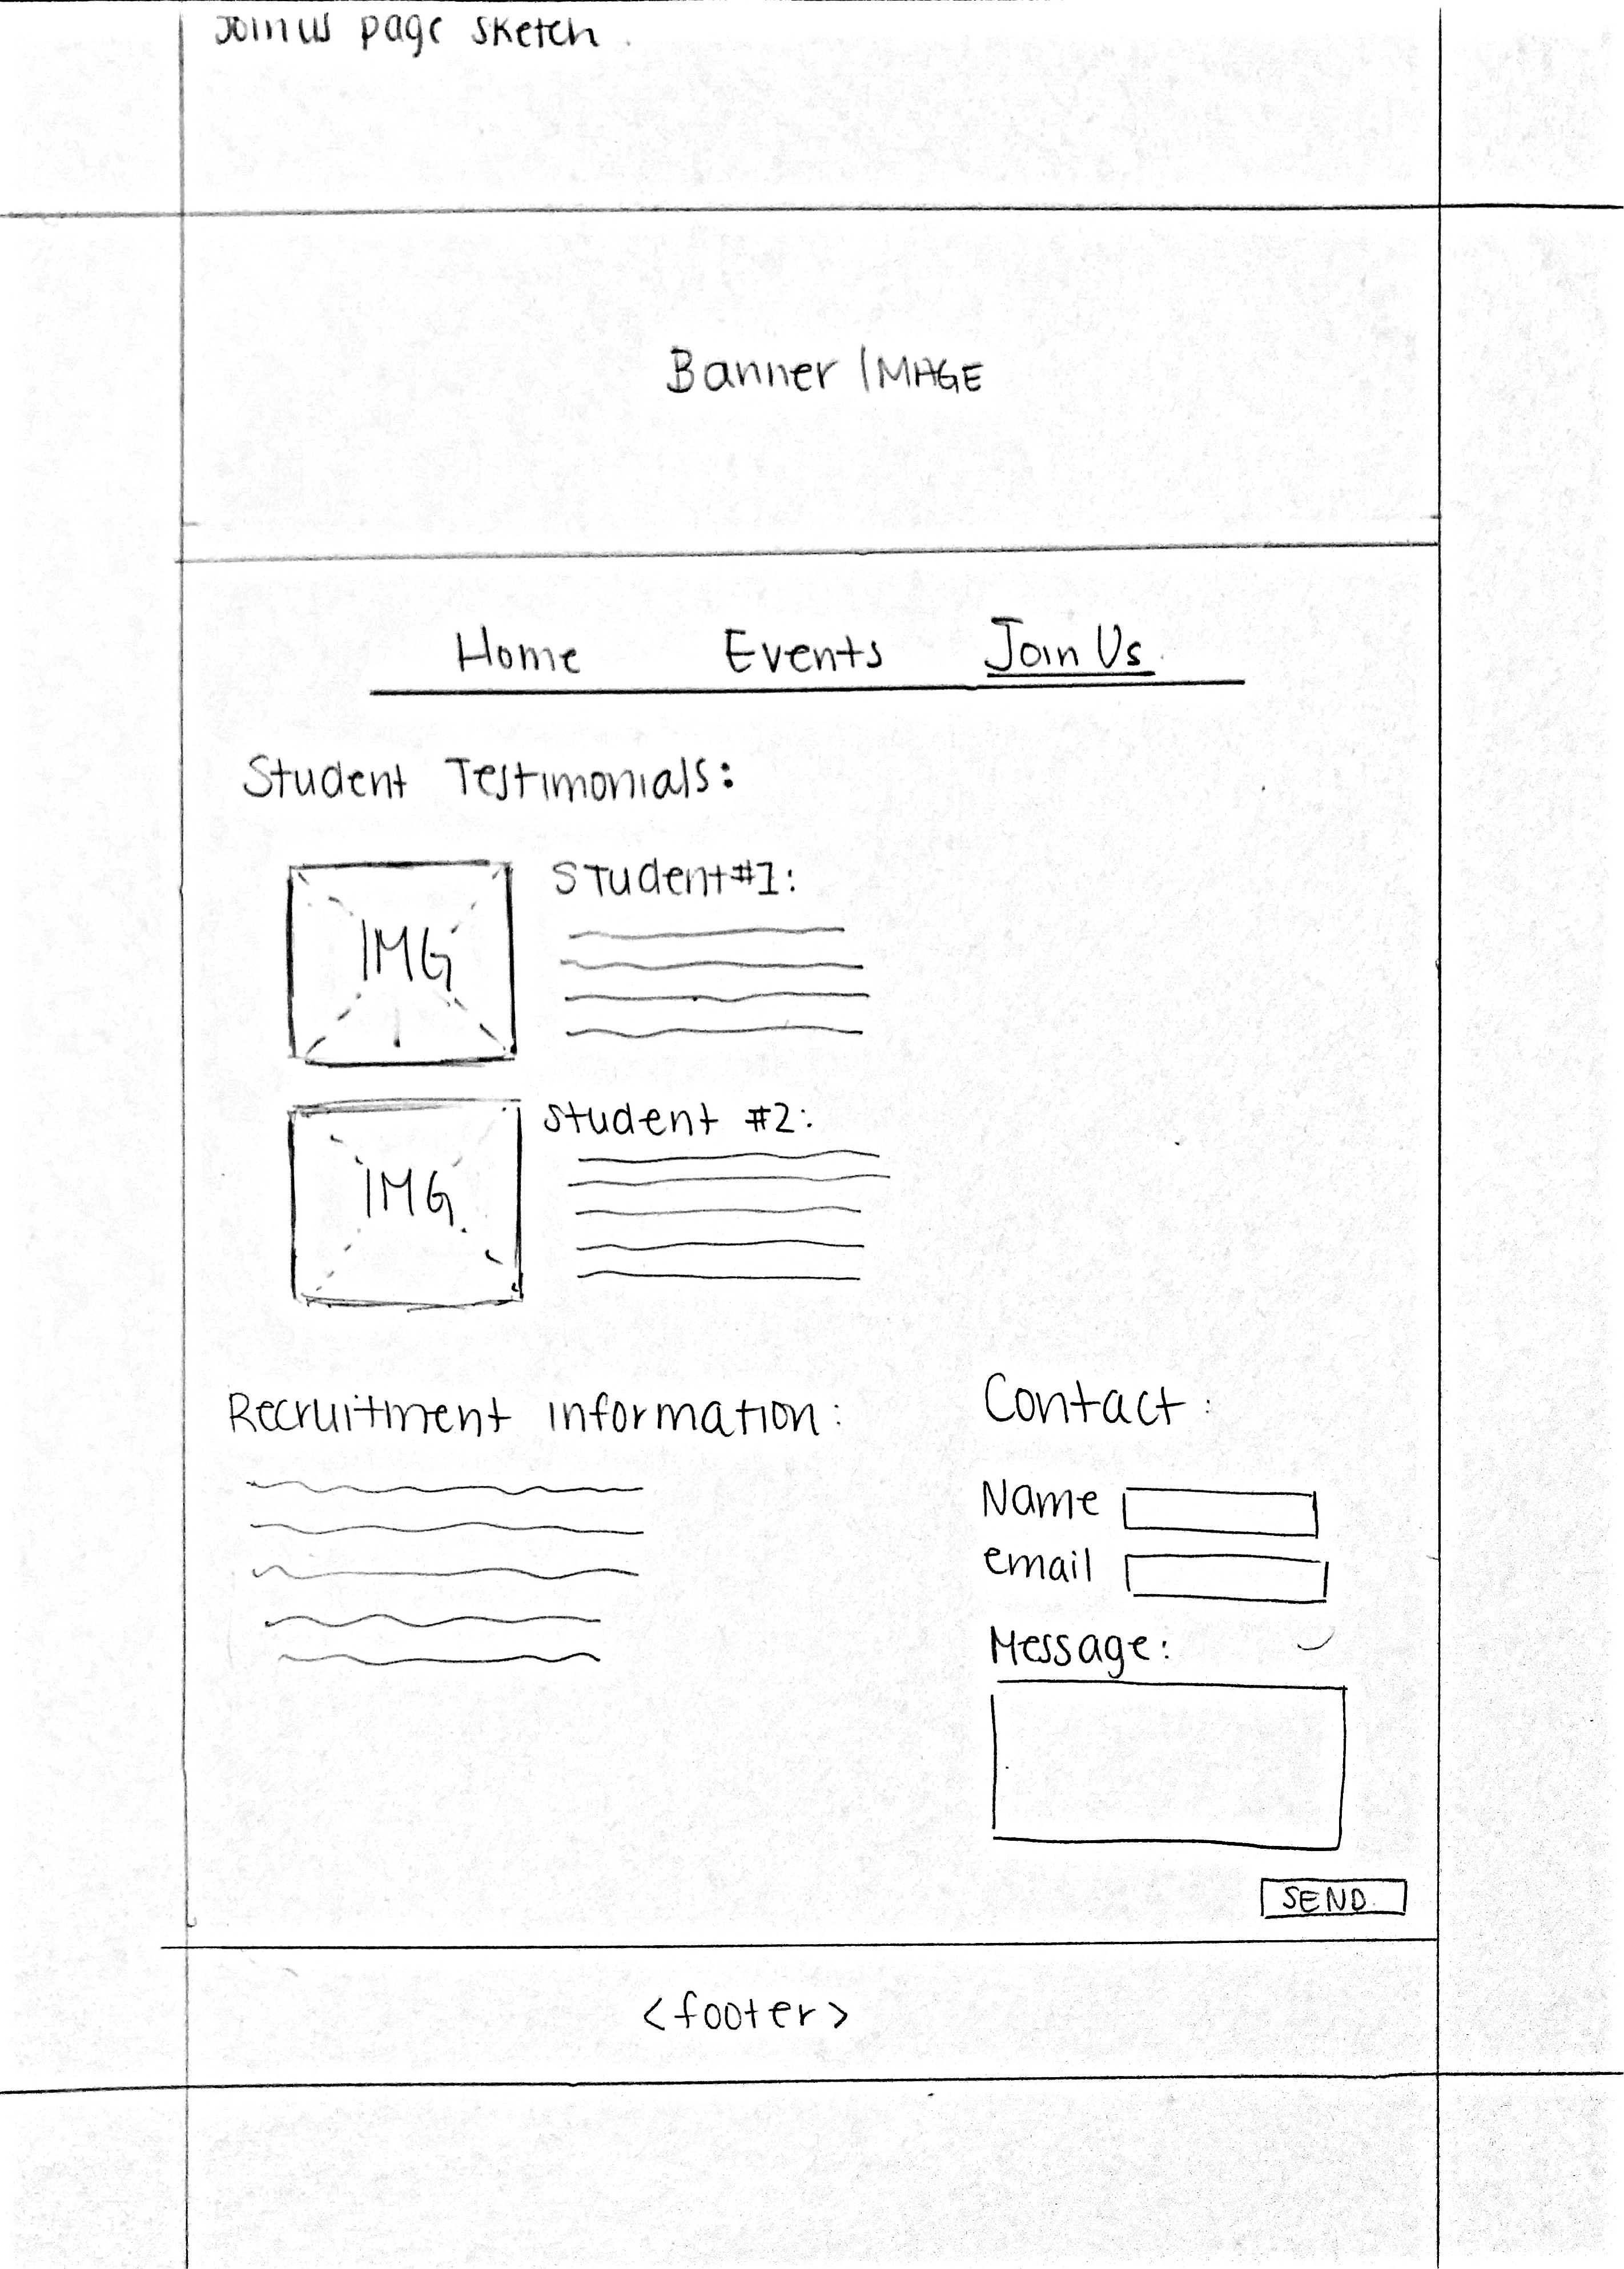 Join us page sketch.
Banner IMAGE
Home Events Join Us
Student Testimonials:
IMG
Student #1:
IMG
Student #2:
Recruitment information:
Contact:
Name
email
Message:
SEND
<footer>